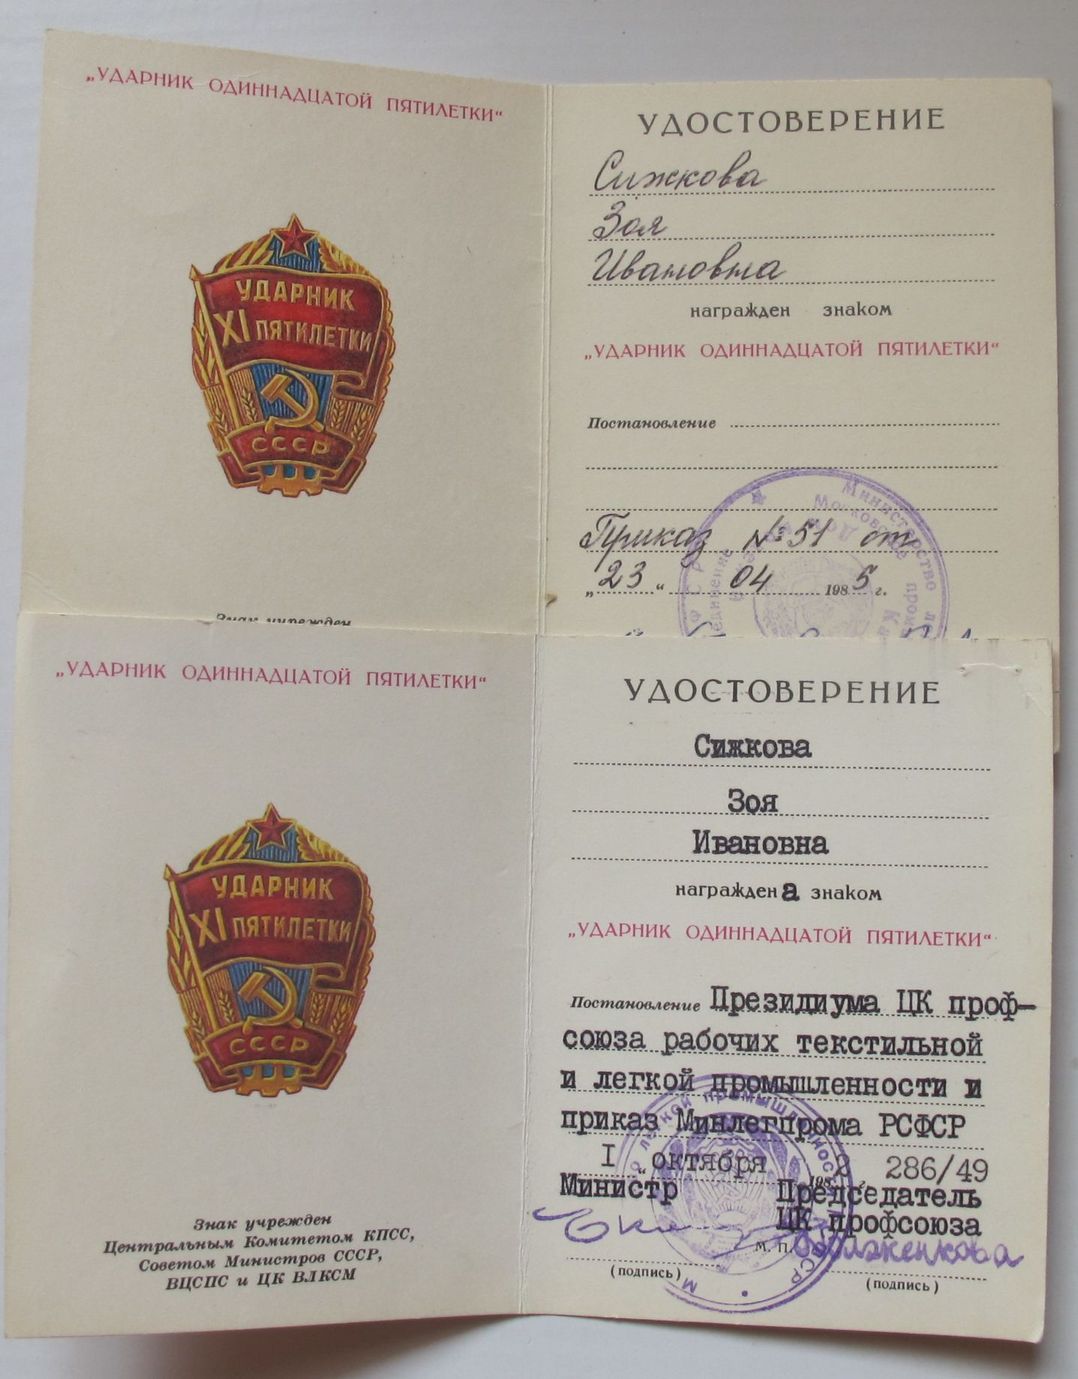 „УДАРНИК ОДИННАДЦАТОЙ ПЯТИЛЕТКИ“
УДАРНИК
XI ПЯТИЛЕТКИ
СССР
Знак учрежден
УДОСТОВЕРЕНИЕ
Сижкова
Зоя
Ивановна
награжден знаком
„УДАРНИК ОДИННАДЦАТОЙ ПЯТИЛЕТКИ“
Постановление
Приказ №51 от
„23“ 04 1985 г.
Министерство
Московское
„УДАРНИК ОДИННАДЦАТОЙ ПЯТИЛЕТКИ“
УДАРНИК
XI ПЯТИЛЕТКИ
СССР
Знак учрежден
Центральным Комитетом КПСС,
Советом Министров СССР,
ВЦСПС и ЦК ВЛКСМ
УДОСТОВЕРЕНИЕ
Сижкова
Зоя
Ивановна
награждена знаком
„УДАРНИК ОДИННАДЦАТОЙ ПЯТИЛЕТКИ“
Постановление Президиума ЦК проф-
союза рабочих текстильной
и легкой промышленности и
приказ Минлегпрома РСФСР
I октября 1982 г. 286/49
Министр Председатель
ЦК профсоюза
М. П.
(подпись) (подпись)
легкой промышленнос